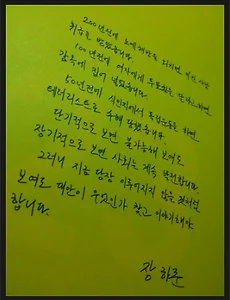 200년전에 노예해방을 외치면 미친 사람
취급을 받았습니다.
100년전에 여자에게 투표권을 달라고 하면
감옥에 집어 넣었습니다.
50년전에 식민지에서 독립운동을 하면
테러리스트로 수배 당했습니다.
단기적으로 보면 불가능해 보여도
장기적으로 보면 사회는 계속 발전합니다.
그러니 지금 당장 이루어지지 않을 것처럼
보여도 대안이 무엇인가 찾고 이야기해야
합니다.
장하준